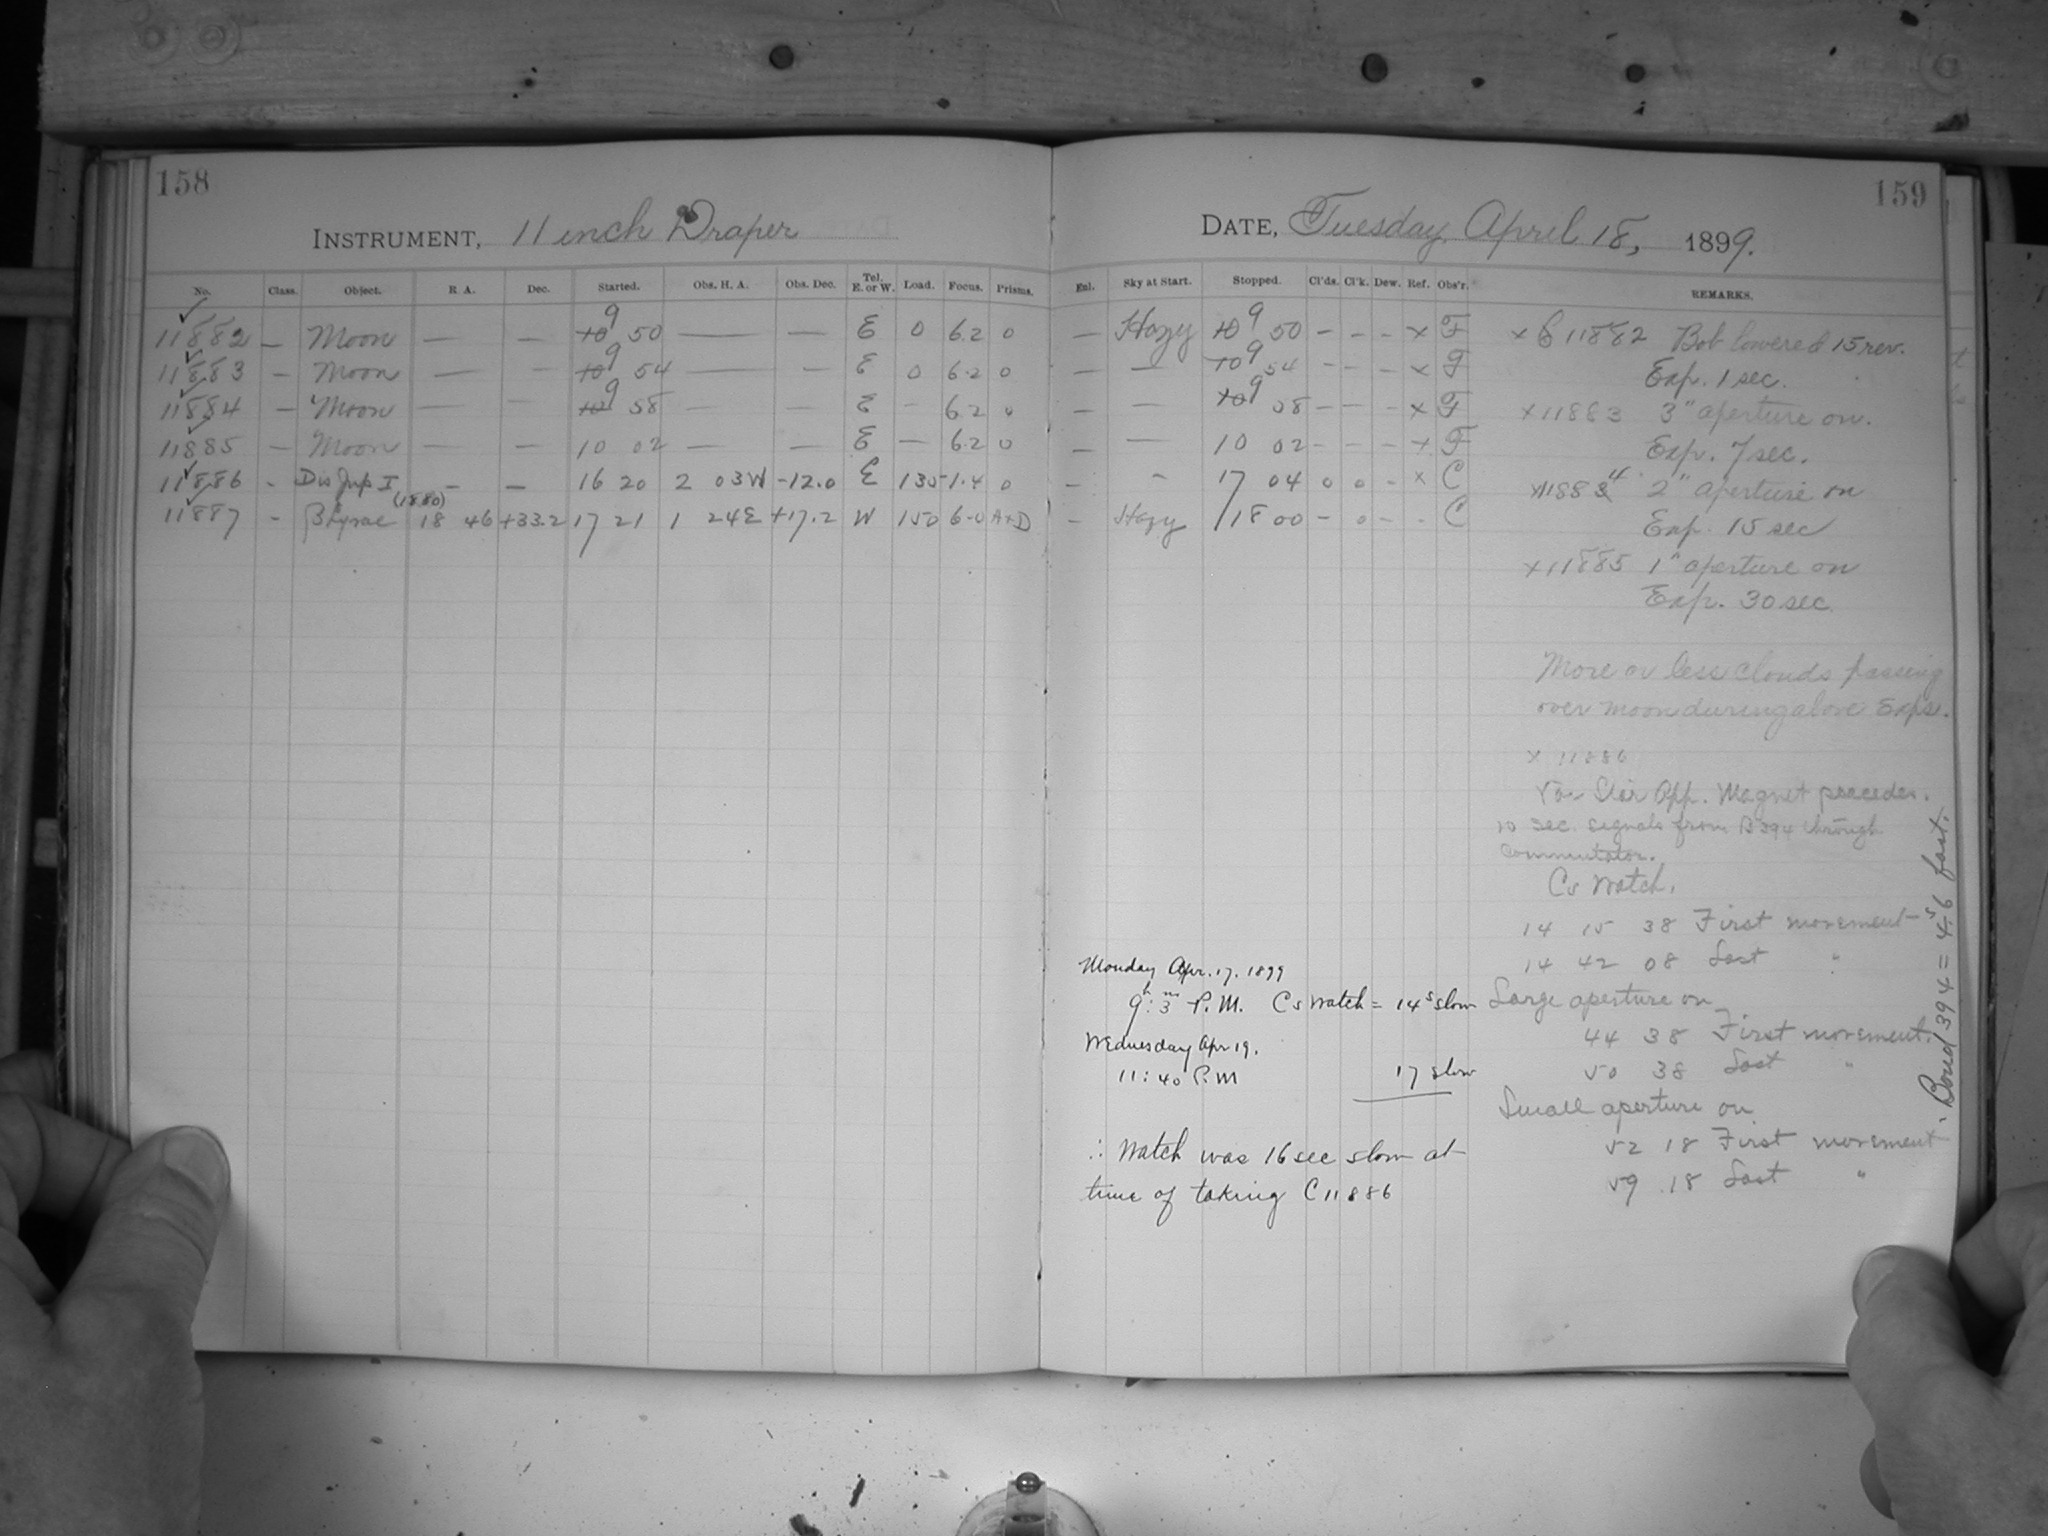 158
INSTRUMENT, 11 inch Draper
No. Class. Object. R. A. Dec. Started. Obs. H. A. Obs. Dec. Tel. E. or W. Load. Focus. Prisms.
11882 — Moon — — 10 9 50 — — E 0 6.2 0
11883 — Moon — — 10 9 54 — — E 0 6.2 0
11884 — Moon — — 10 9 58 — — E — 6.2 0
11885 — Moon — — 10 02 — — E — 6.2 0
11886 - Dis Jup I — — 16 20 2 03W -12.0 E 135 -1.4 0
11887 - β Lyrae (1880) 18 46 +33.2 17 21 1 24E +17.2 W 150 6.0 A+D
159
DATE, Tuesday, April 18, 1899.
Enl. Sky at Start. Stopped. Cl'ds. Cl'k. Dew. Ref. Obs'r. REMARKS.
— Hazy 10 9 50 - - - x F
— — 10 9 54 - - - x F
— — 10 9 58 - - - x F
— — 10 02 - - - x F
— - 17 04 0 0 - x C
— Hazy 18 00 - 0 - - C
x C 11882 Bob lowered 15 rev.
Exp. 1 sec.
x 11883 3" aperture on.
Exp. 7 sec.
x 11883 4 2" aperture on
Exp. 15 sec
x 11885 1" aperture on
Exp. 30 sec.
More or less clouds passing
over moon during above Exps.
x 11886
Var Star App. Magnet precedes.
10 sec. signals from B394 through
commutator.
Cs Watch.
14 15 38 First movement
14 42 08 Last "
Large aperture on
44 38 First movement.
50 38 Last "
Small aperture on
52 18 First movement
59 18 Last "
Bond 394 = 46s fast.
Monday Apr. 17. 1899
9h: 3m P.M. Cs Watch = 14s slow
Wednesday Apr 19.
11:40 P.M 17 slow
∴ Watch was 16 sec slow at
time of taking C 11886